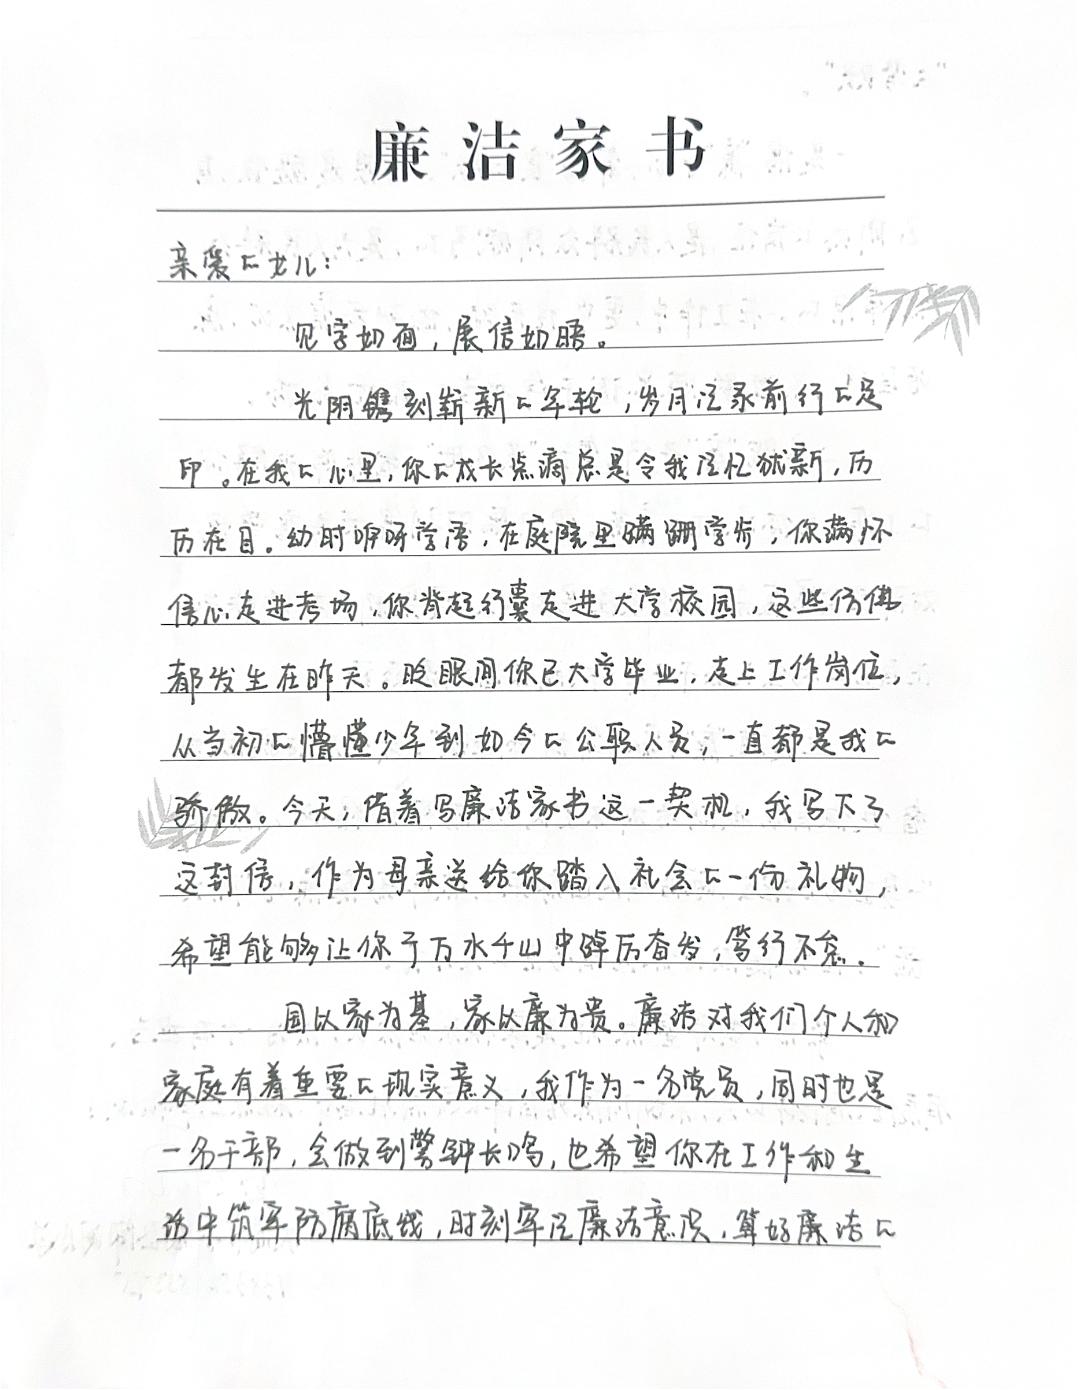 廉洁家书
亲爱的女儿：
见字如面，展信如晤。
光阴镌刻崭新的年轮，岁月记录前行的足
印。在我的心里，你的成长点滴总是令我记忆犹新，历
历在目。幼时咿呀学语，在庭院里蹒跚学步，你满怀
信心走进考场，你背起行囊走进大学校园，这些仿佛
都发生在昨天。眨眼间你已大学毕业，走上工作岗位，
从当初的懵懂少年到如今的公职人员，一直都是我的
骄傲。今天，借着写廉洁家书这一契机，我写下了
这封信，作为母亲送给你踏入社会的一份礼物，
希望能够让你于万水千山中踔厉奋发，笃行不怠。
国以家为基，家以廉为贵。廉洁对我们个人和
家庭有着重要的现实意义，我作为一名党员，同时也是
一名干部，会做到警钟长鸣，也希望你在工作和生
活中筑牢防腐底线，时刻牢记廉洁意识，算好廉洁的